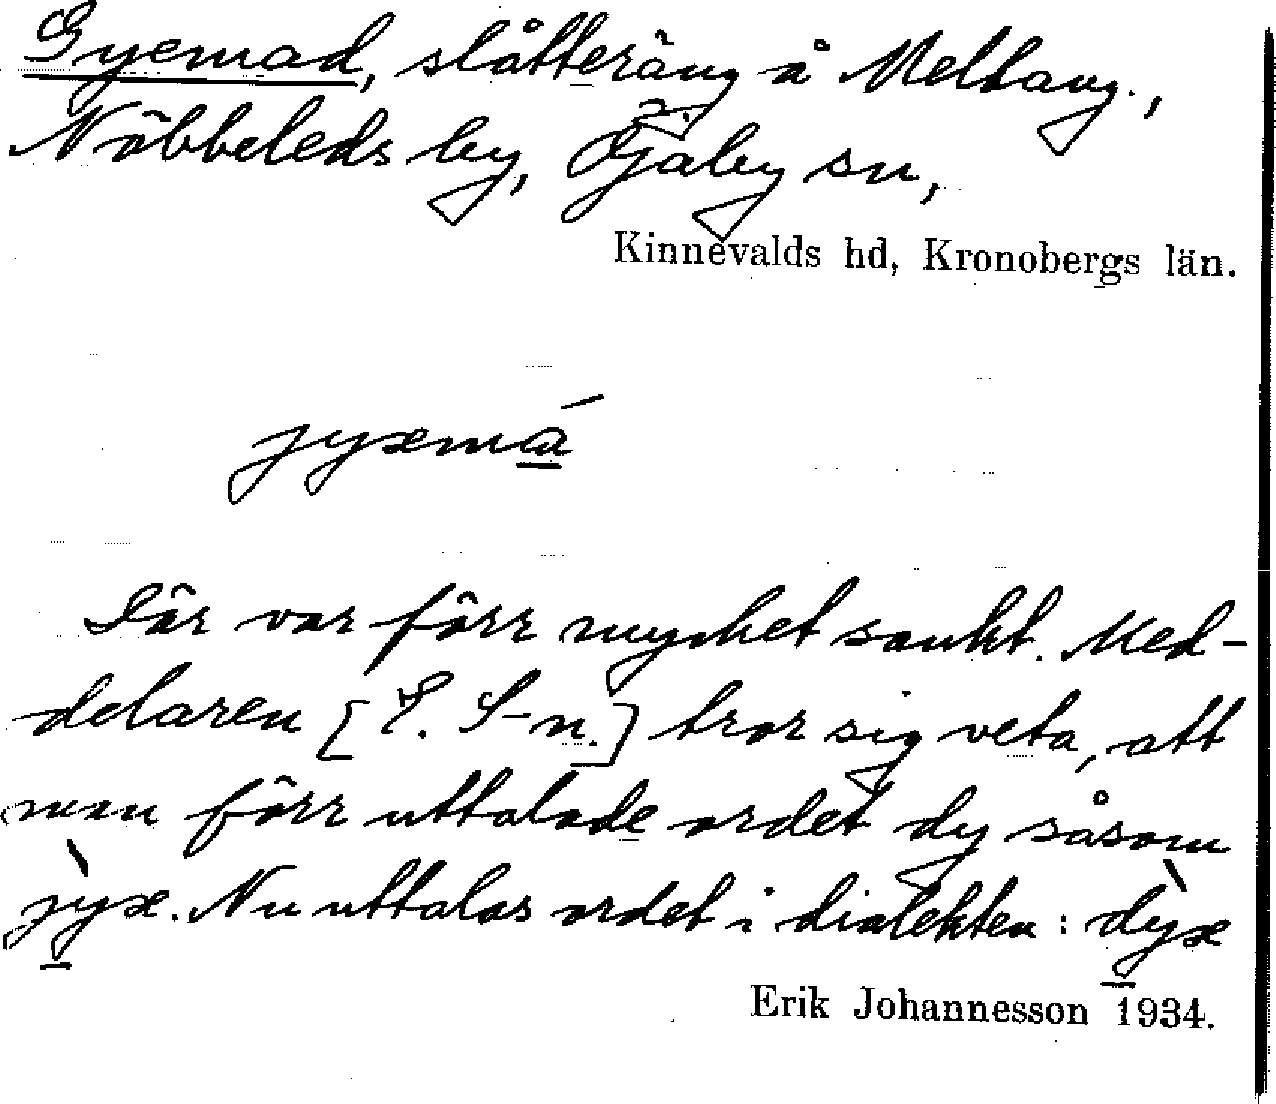 Gyemad, slåtteräng å Mellang.,
Nöbbeleds by, Öjaby sn,
Kinnevalds hd, Kronobergs län.
jyæmá
Där var förr mycket sankt. Med-
delaren [E. S-n.] tror sig veta, att
man förr uttalade ordet dy såsom
jỳæ. Nu uttalas ordet i dialekten: dỳæ
Erik Johannesson 1934.